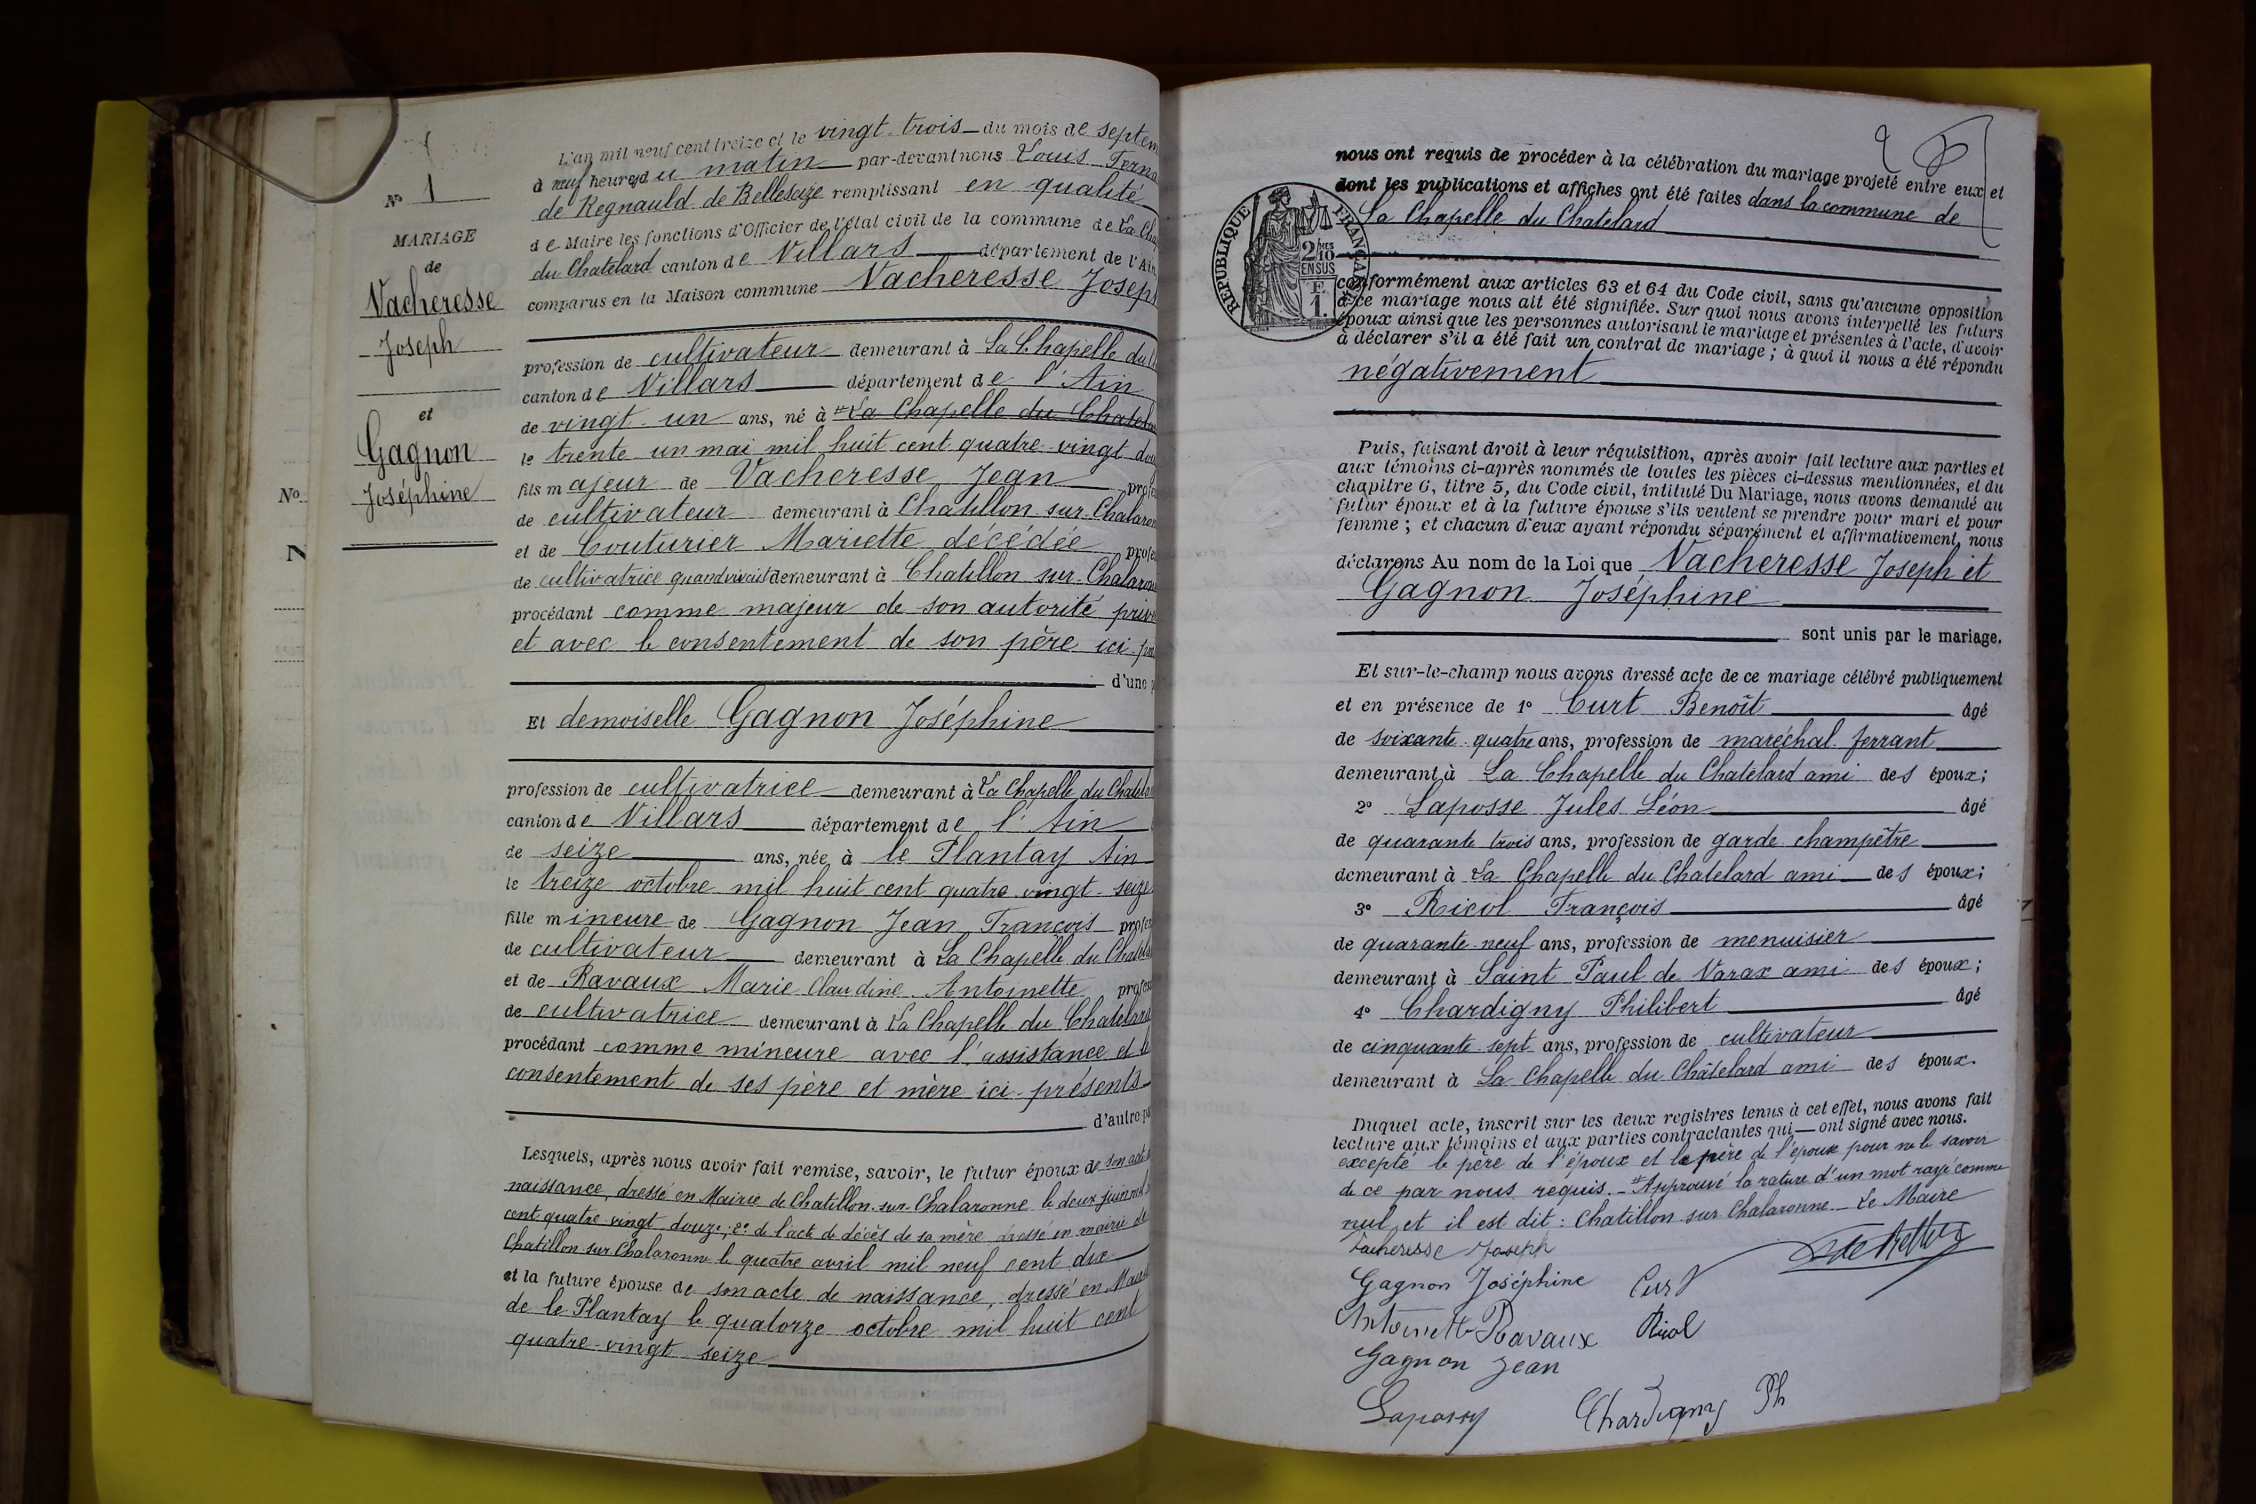 N° 1
MARIAGE
de
Vacheresse
Joseph
et
Gagnon
Joséphine
No
N
L'an mil neuf cent treize et le vingt-trois du mois de septem
à neuf heures du matin par-devant nous Louis Ferna
de Regnauld de Bellescize remplissant en qualité
de Maire les fonctions d'Officier de l'état civil de la commune de La Cha
du Chatelard canton de Villars département de l'Ain
comparus en la Maison commune Vacheresse Joseph
profession de cultivateur demeurant à La Chapelle du
canton de Villars département de l'Ain
de vingt-un ans, né à # La Chapelle du Chatela
le trente-un mai mil huit cent quatre-vingt dou
fils majeur de Vacheresse Jean profes
de cultivateur demeurant à Chatillon-sur-Chalaron
et de Couturier Mariette décédée profes
de cultivatrice quand vivait demeurant à Chatillon-sur-Chalaron
procédant comme majeur de son autorité privé
et avec le consentement de son père ici
d'une p
Et demoiselle Gagnon Joséphine
profession de cultivatrice demeurant à La Chapelle du Chatela
canton de Villars département de l'Ain
de seize ans, née à le Plantay Ain
le treize octobre mil huit cent quatre-vingt-seize
fille mineure de Gagnon Jean François profes
de cultivateur demeurant à La Chapelle du Chatela
et de Ravaux Marie Claudine Antoinette profes
de cultivatrice demeurant à La Chapelle du Chatelard
procédant comme mineure avec l'assistance et le
consentement de ses père et mère ici présents
d'autre pa
Lesquels, après nous avoir fait remise, savoir, le futur époux de son acte de
naissance, dressé en Mairie de Chatillon-sur-Chalaronne le deux juin mil
cent quatre-vingt-douze; 2° de l'acte de décès de sa mère dressé en mairie de
Chatillon sur Chalaronne le quatre avril mil neuf cent dix
et la future épouse de son acte de naissance, dressé en Mairie
de le Plantay le quatorze octobre mil huit cent
quatre-vingt-seize
2
RÉPUBLIQUE FRANÇAISE
2/10 EN SUS
F. 1.
nous ont requis de procéder à la célébration du mariage projeté entre eux et
dont les publications et affiches ont été faites dans la commune de
La Chapelle du Chatelard
conformément aux articles 63 et 64 du Code civil, sans qu'aucune opposition
à ce mariage nous ait été signifiée. Sur quoi nous avons interpellé les futurs
époux ainsi que les personnes autorisant le mariage et présentes à l'acte, d'avoir
à déclarer s'il a été fait un contrat de mariage ; à quoi il nous a été répondu
négativement
Puis, faisant droit à leur réquisition, après avoir fait lecture aux parties et
aux témoins ci-après nommés de toutes les pièces ci-dessus mentionnées, et du
chapitre 6, titre 5, du Code civil, intitulé Du Mariage, nous avons demandé au
futur époux et à la future épouse s'ils veulent se prendre pour mari et pour
femme ; et chacun d'eux ayant répondu séparément et affirmativement, nous
déclarons Au nom de la Loi que Vacheresse Joseph et
Gagnon Joséphine
sont unis par le mariage.
Et sur-le-champ nous avons dressé acte de ce mariage célébré publiquement
et en présence de 1° Curt Benoît âgé
de soixante-quatre ans, profession de maréchal ferrant
demeurant à La Chapelle du Chatelard ami des époux;
2° Laposse Jules Léon âgé
de quarante trois ans, profession de garde champêtre
demeurant à La Chapelle du Chatelard ami des époux;
3° Ricol François âgé
de quarante-neuf ans, profession de menuisier
demeurant à Saint Paul de Varax ami des époux;
4° Chardigny Philibert âgé
de cinquante-sept ans, profession de cultivateur
demeurant à La Chapelle du Châtelard ami des époux.
Duquel acte, inscrit sur les deux registres tenus à cet effet, nous avons fait
lecture aux témoins et aux parties contractantes qui ont signé avec nous.
excepté le père de l'époux et le père de l'épouse pour ne le savoir
de ce par nous requis. # Approuvé la rature d'un mot rayé comme
nul et il est dit : Chatillon sur Chalaronne Le Maire
Vacheresse Joseph
Gagnon Joséphine Curt
Antoinette Ravaux Ricol
Gagnon Jean
Chardigny Ph